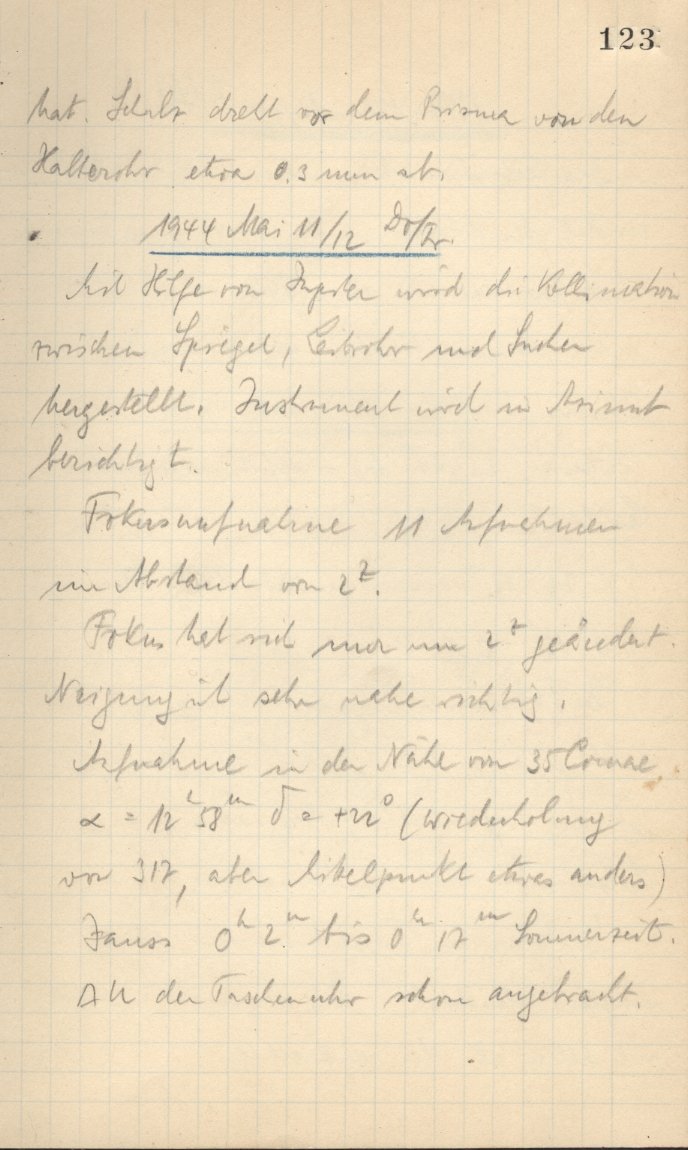 123
hat. Schulz dreht vor dem Prisma von den
Halterohr etwa 0.3 mm ab.
1944 Mai 11/12 Do/Fr.
Mit Hilfe von Jupiter wird die Kollimation
zwischen Spiegel, Leitrohr und Sucher
hergestellt. Instrument wird in Azimut
berichtigt.
Fokusaufnahme 11 Aufnahmen
im Abstand von 2ᶻ.
Fokus hat sich nur um 2ᶻ geändert.
Neigung ist sehr nahe richtig.
Aufnahme in der Nähe von 35 Comae
α = 12ʰ 58ᵐ δ = +22° (Wiederholung
von 317, aber Mittelpunkt etwas anders)
0ʰ 2ᵐ bis 0ʰ 17ᵐ Sommerzeit.
ΔU der Taschenuhr schon angebracht.